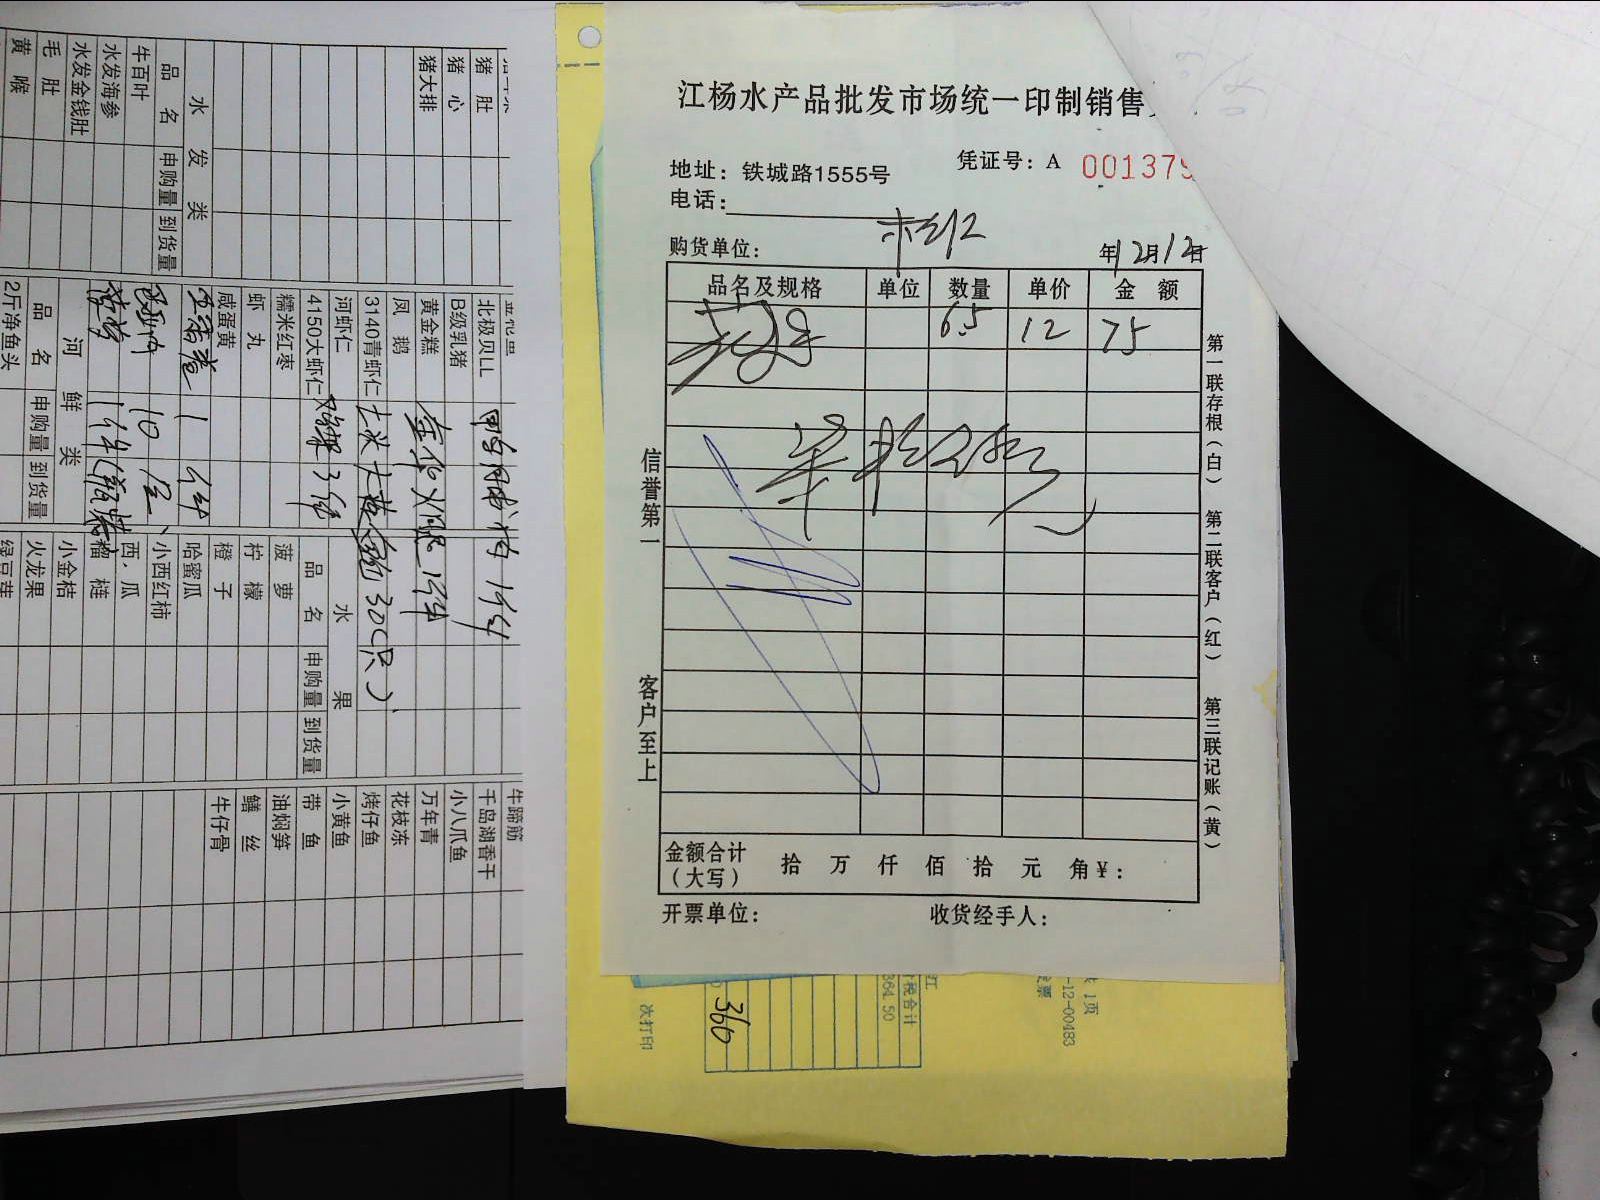 江杨水产品批发市场统一印制销售
地址：铁城路1555号
凭证号：A 001379
电话：
购货单位：
年12月12日
品名及规格 单位 数量 单价 金 额
6.5 12 75
信誉第一
客户至上
第一联存根（白） 第二联客户（红） 第三联记账（黄）
金额合计（大写） 拾 万 仟 佰 拾 元 角 ¥：
开票单位： 收货经手人：
价税合计
364.50
360
次打印
1页
-12-00483
猪 肚
猪 心
猪大排
水 发 类
品 名 申购量 到货量
牛百叶
水发海参
水发金钱肚
毛 肚
黄 喉
北极贝LL
B级乳猪
黄金糕 金华火腿 1件
凤 鹅
3140青虾仁
河虾仁
4150大虾仁
糯米红枣
虾 丸
咸蛋黄
30(只)
河 鲜 类
品 名 申购量 到货量
2斤净鱼头
水 果
品 名 申购量 到货量
菠 萝
柠 檬
橙 子
哈蜜瓜
小西红柿
西 瓜
榴 梿
小金桔
火龙果
绿豆芽
牛蹄筋
千岛湖香干
小八爪鱼
万年青
花枝冻
烤仔鱼
小黄鱼
带 鱼
油焖笋
鳝 丝
牛仔骨